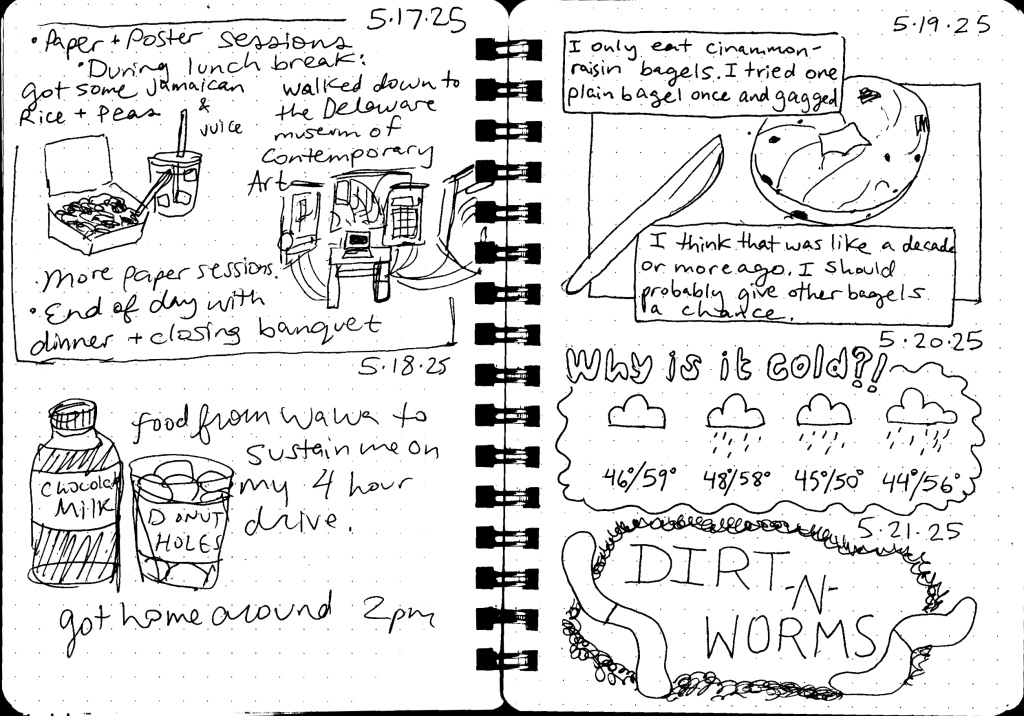 5.17.25
• Paper + Poster sessions
• During lunch break:
got some Jamaican
Rice + Peas
& Juice
walked down to
the Delaware
museum of
Contemporary
Art
• More paper sessions.
• End of day with
dinner + closing banquet
5.18.25
food from wawa to
sustain me on
my 4 hour
drive.
Chocolate
Milk
DONUT
HOLES
got home around 2pm
5.19.25
I only eat cinammon-
raisin bagels. I tried one
plain bagel once and gagged
I think that was like a decade
or more ago. I should
probably give other bagels
a chance.
5.20.25
Why is it cold?!
46°/59° 48°/58° 45°/50° 44°/56°
5.21.25
DIRT
-N-
WORMS